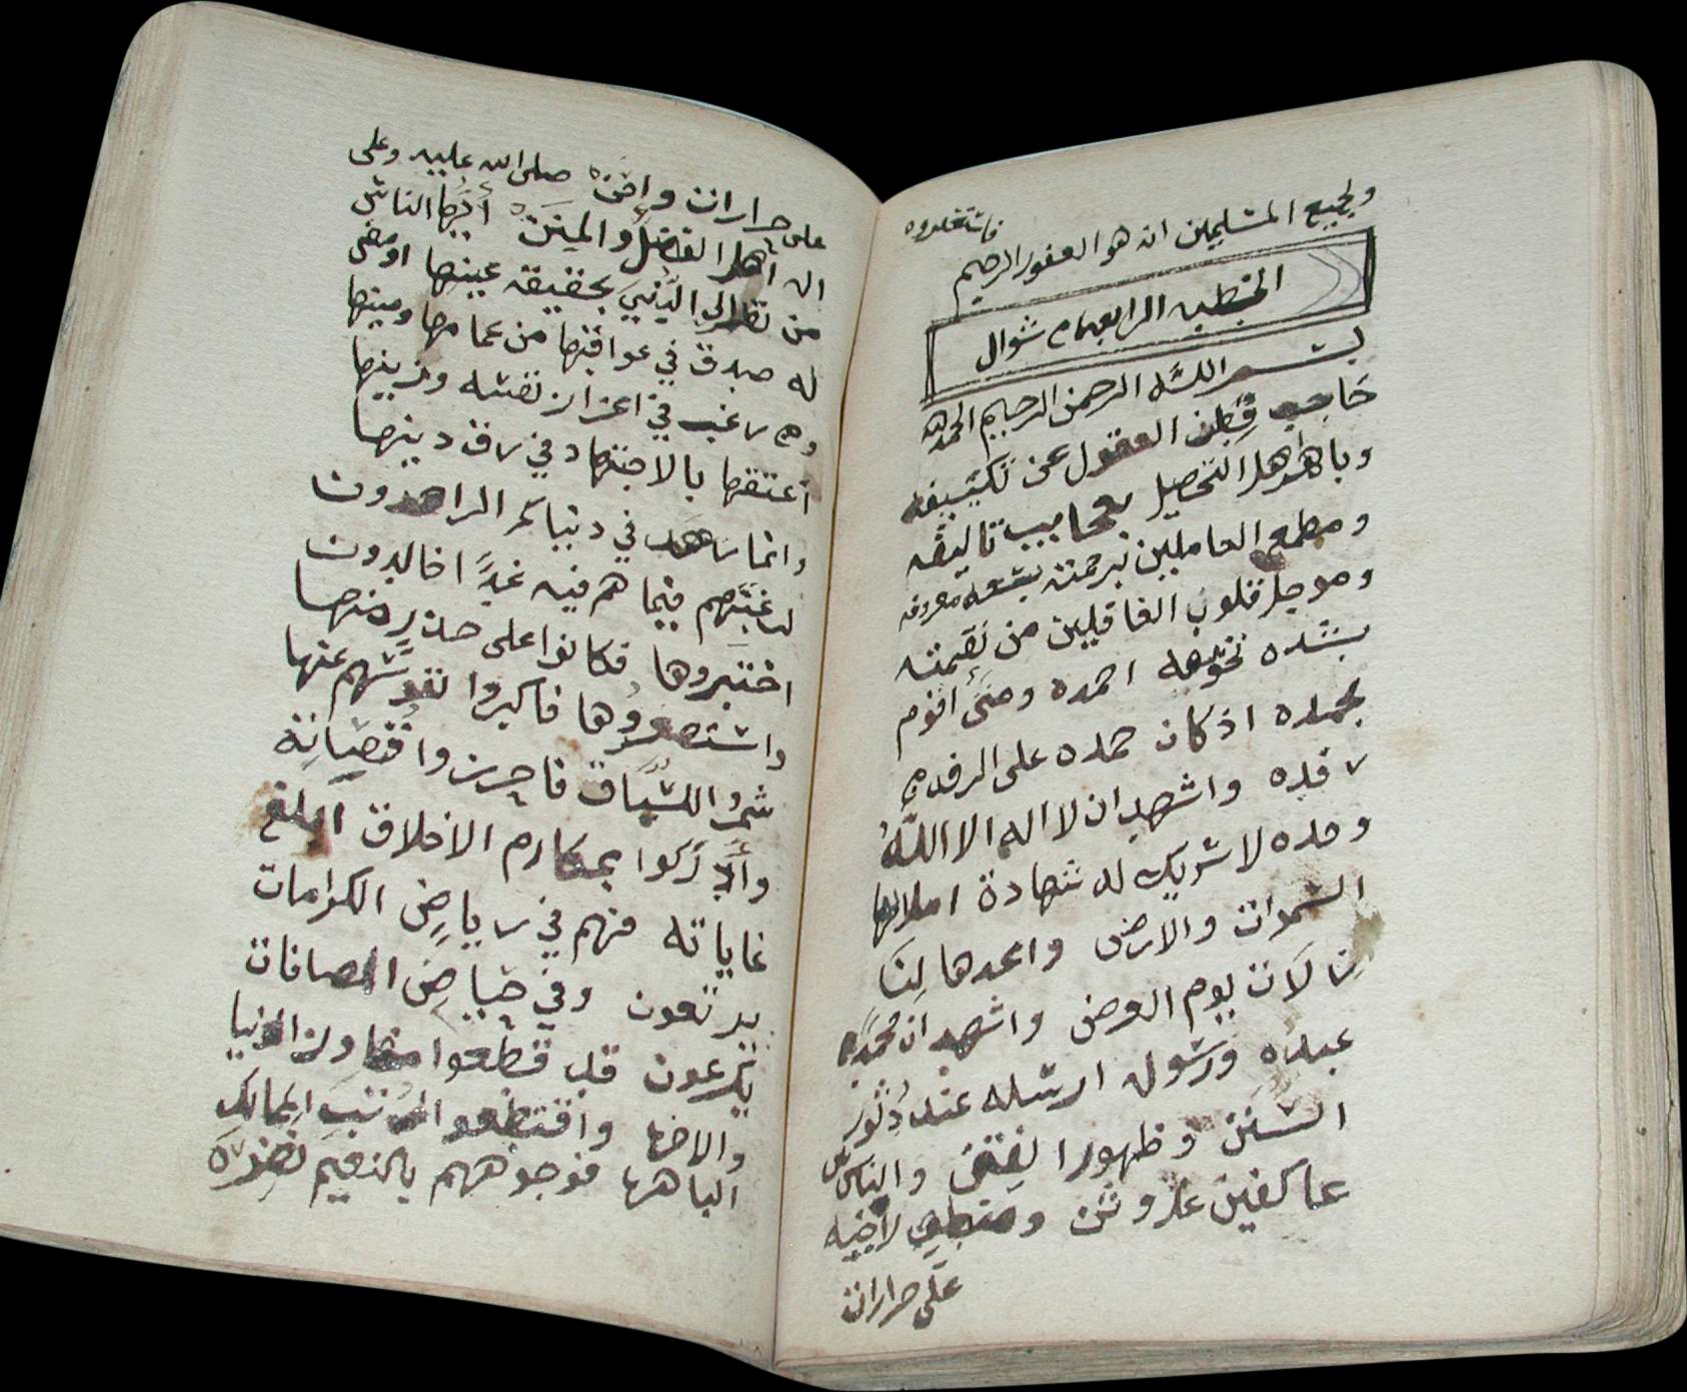 ولجميع المسلمين انه هو الغفور الرحيم
فاستغفروه
الخطبه الرابعه شوال
بسم الله الرحمن الرحيم الحمد لله
حاجب فطن العقول عن تكييفه
وباهر اهل التحصيل بعجايب تاليفه
ومطمع العاملين برحمته بسعه معروفه
وموجل قلوب الغافلين من نقمته
بشده تخويفه احمده ومتى اقوم
بحمده اذ كان حمده على الرفد من
رفده واشهد ان لا اله الا الله
وحده لا شريك له شهادة املا بها
السموات والارض واعدها لنا
يوم العرض واشهد ان محمدا
عبده ورسوله ارسله عند دثور
السنن وظهور الفتن والناس
عاكفين على وثن
على حرارات
على حرارات صلى الله عليه وعلى
اله اهل الفضل والمنن ايها الناس
من نظر الى الدنيا بحقيقه عينها اومض
له صدق في عواقبها من عمامها ومينها
ومن رغب في اعزاز نفسه وتزيينها
اعتقها بالاجتهاد في رق دينها
وانما زهد في دنياكم الزاهدون
لرغبتهم فيما هم فيه غدا خالدون
اختبروها فكانوا على حذر منها
واستصغروها فاكبروا نفوسهم عنها
شمروا للسباق فاحرزوا قصباته
وادركوا بمكارم الاخلاق ابلغ
غاياته فهم في رياض الكرامات
يرتعون وفي حياض المصافات
يكرعون قد قطعوا الدنيا
والاخرة واقتطعوا الممالك
الباهرة فوجوههم بالنعيم نضرة